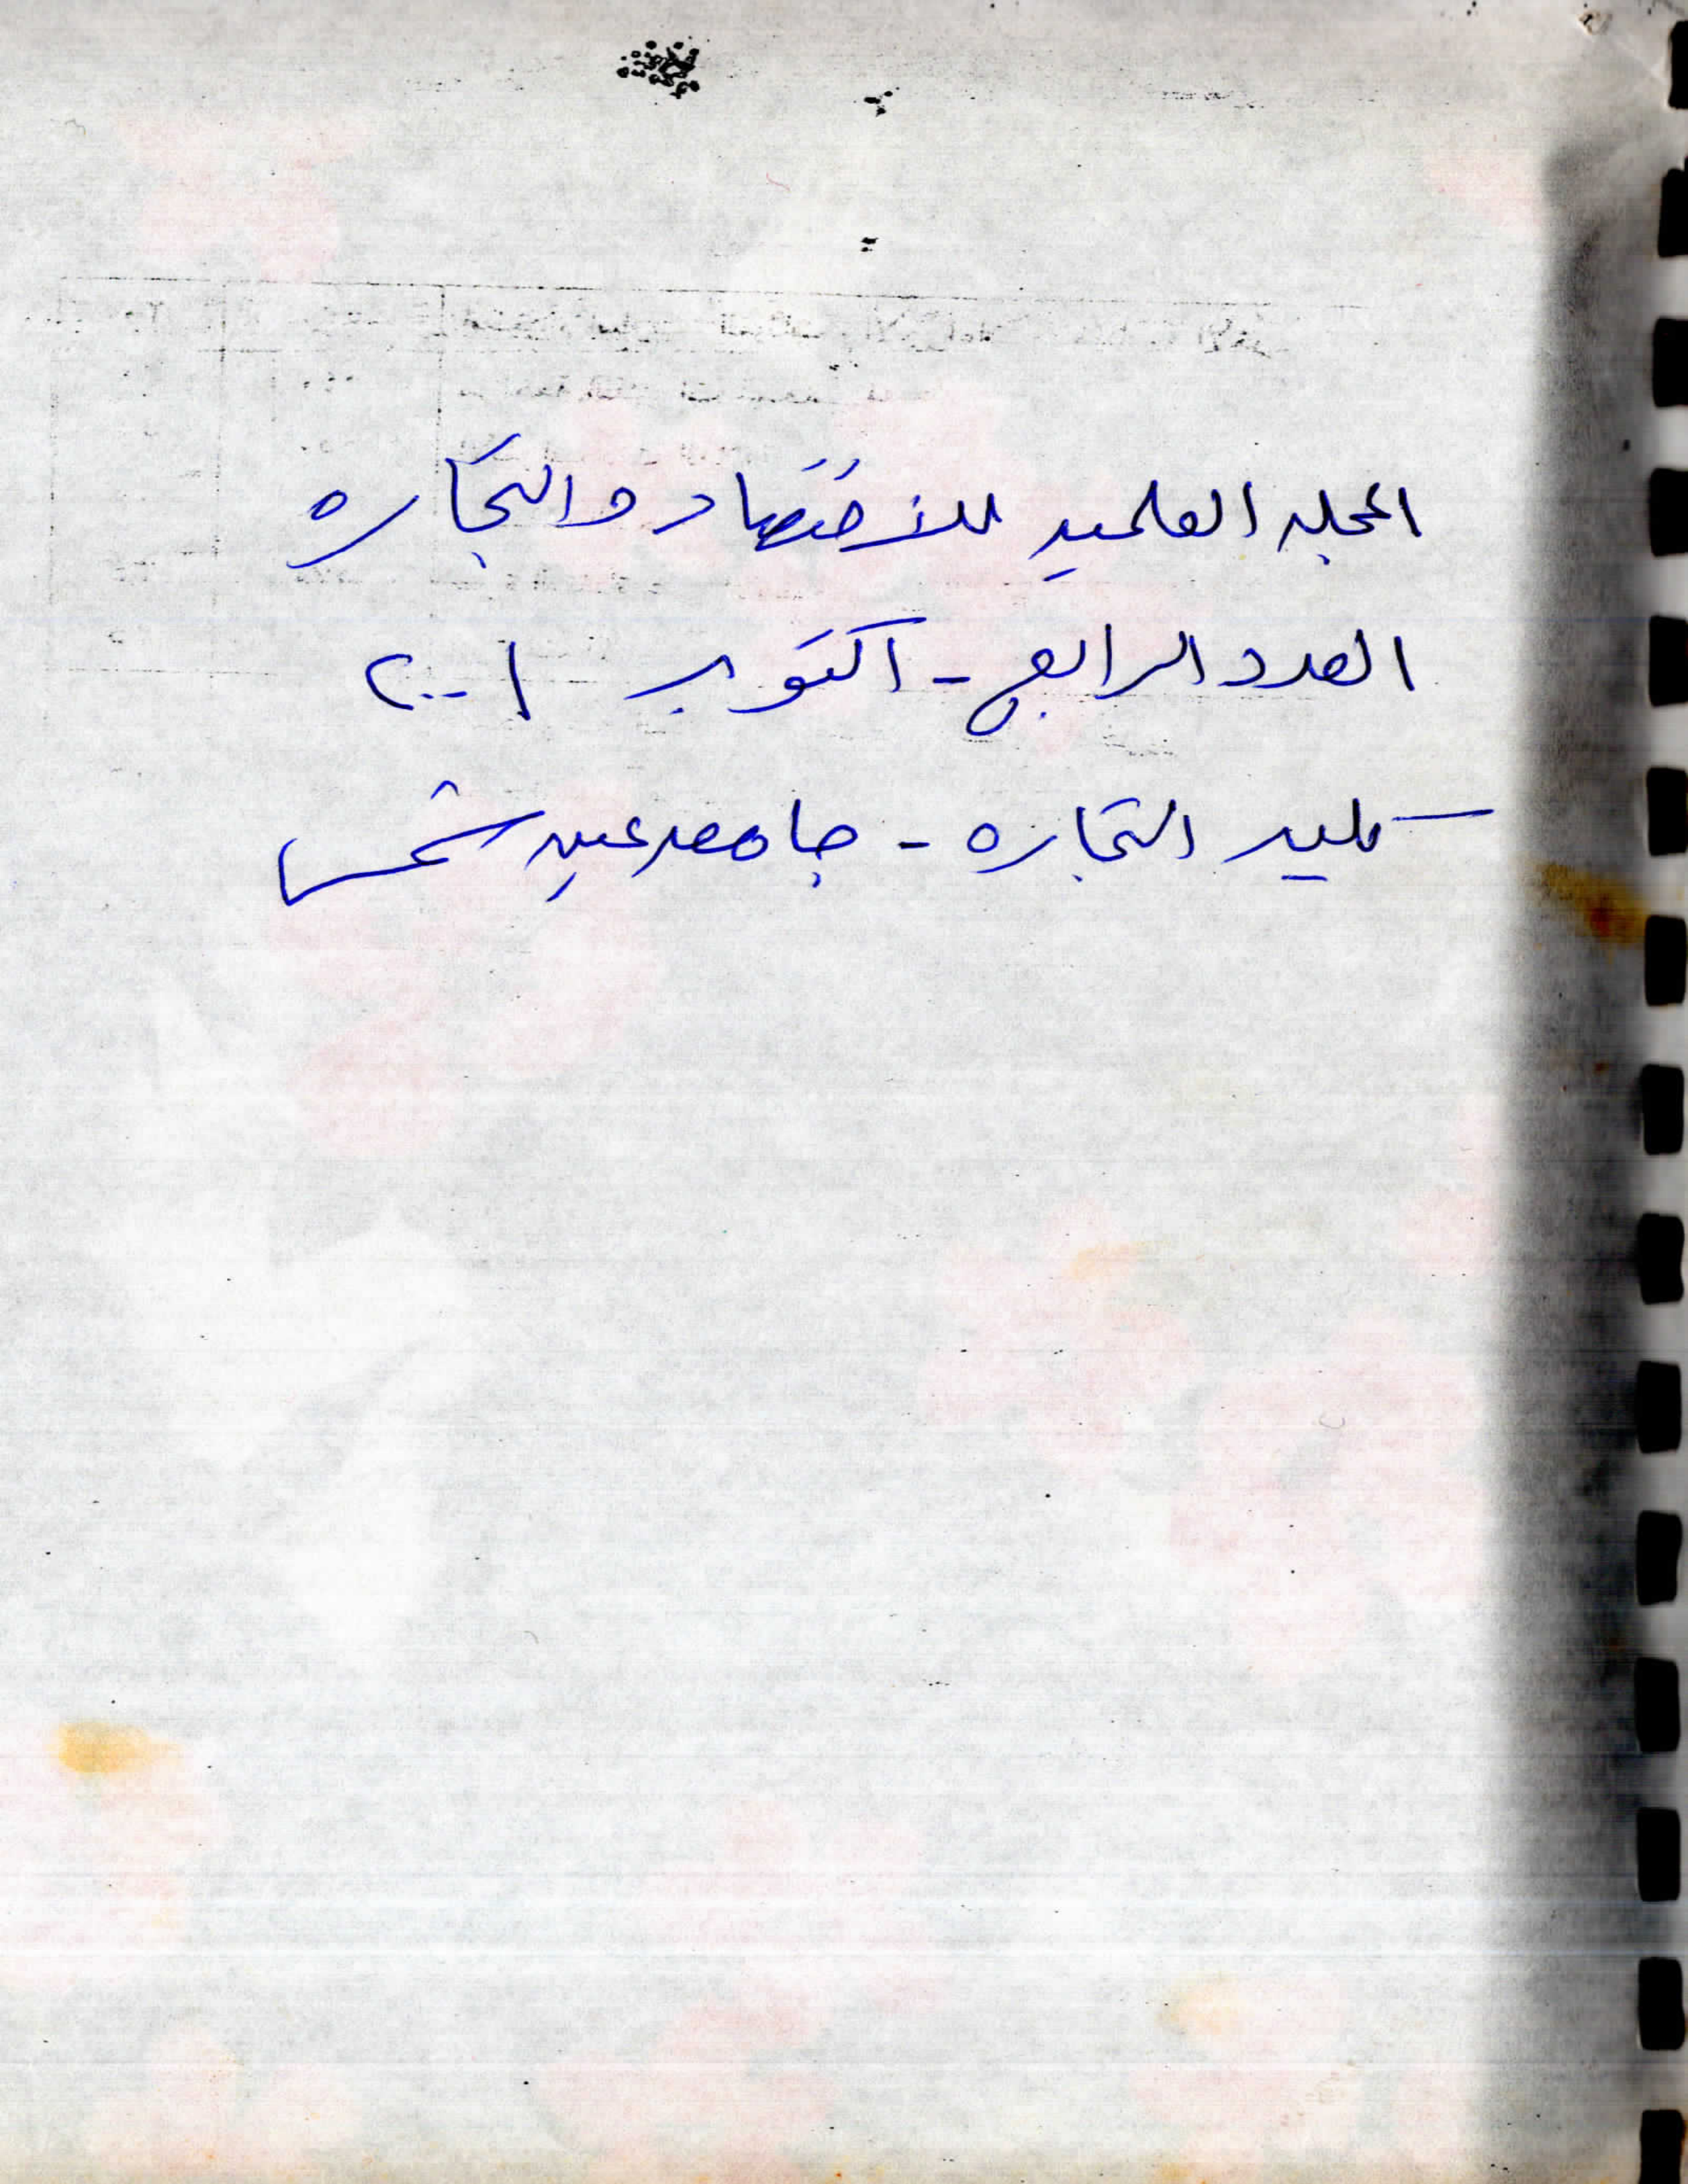 المجله العلميه للاقتصاد والتجاره
العدد الرابع - اكتوبر ٢٠٠١
كليه التجاره - جامعه عين شمس